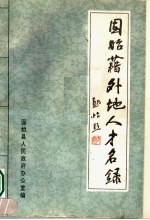 固始籍外地人才名録
固始县人民政府办公室编